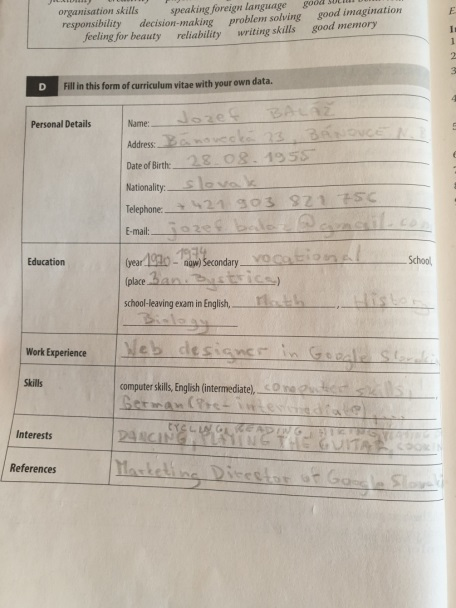 organisation skills speaking foreign language good imagination
responsibility decision-making problem solving good memory
feeling for beauty reliability writing skills
D Fill in this form of curriculum vitae with your own data.
Personal Details
Name: Jozef BALÁŽ
Address: Bánovecká 23, BÁNOVCE N.
Date of Birth: 28.08.1955
Nationality: slovak
Telephone: +421 903 821 756
E-mail: jozef balaz@gmail.com
Education
(year 1970-1974 now) Secondary vocational School,
(place Ban. Bystrica)
school-leaving exam in English, Math, History
Biology
Work Experience Web designer in Google Slovakia
Skills
computer skills, English (intermediate), computer skills,
German (Pre-intermediate),...
Interests
CYCLING, READING, HIKING,
DANCING, PLAYING THE GUITAR, COOKIN
References Marketing Director of Google Slovaki